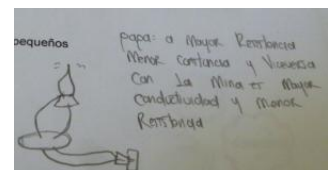 pequeños
papa: a Mayor Resistencia
Menor corriencia y Viceversa
Con La Mina er Mayor
Conductividad y Menor
Resistencia